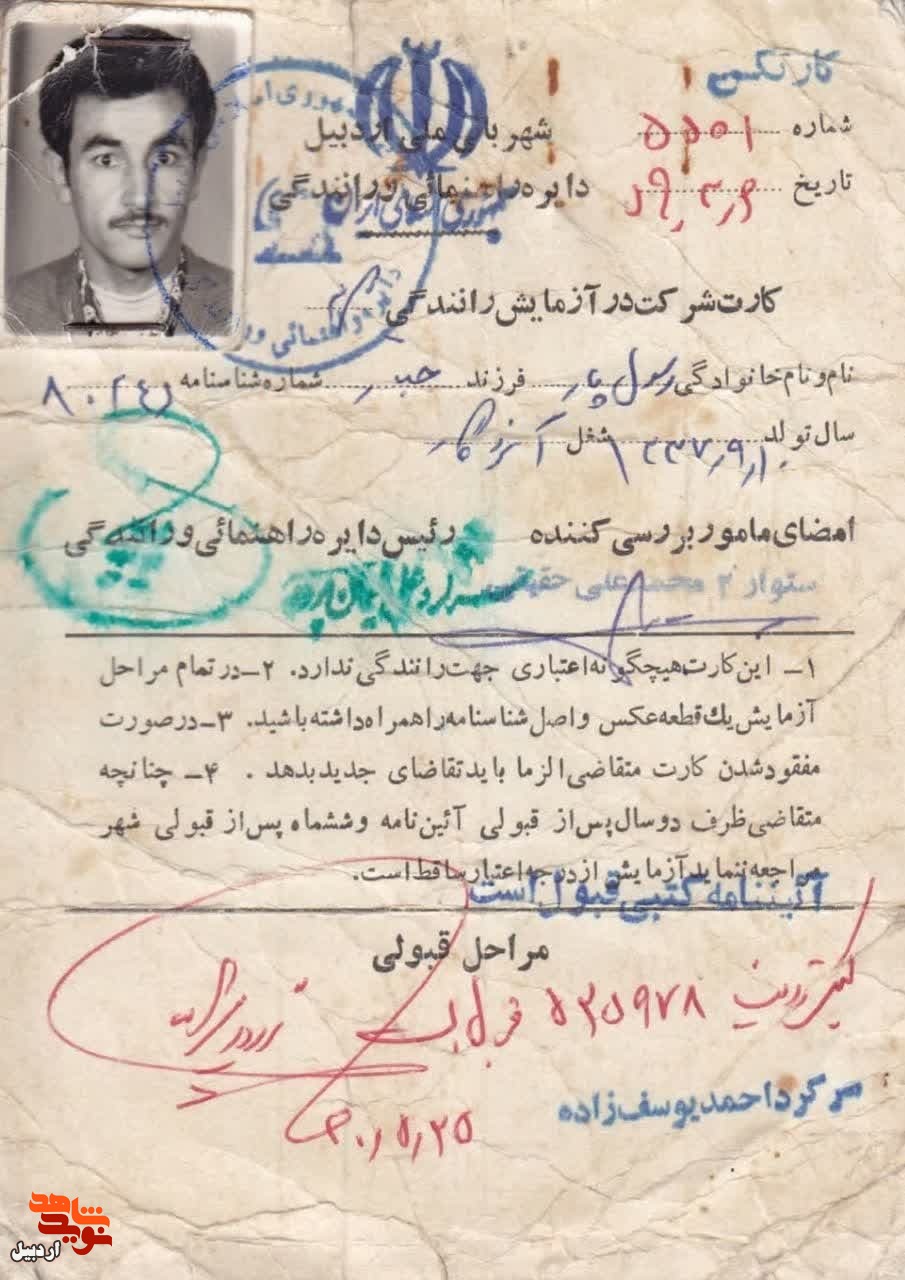 کارتکس
شماره ۵۵۰۱
شهربانی ملی اردبیل
تاریخ ۵۹٫۳٫۶
دایره راهنمائی ورانندگی
جمهوری اسلامی ایران
کارت شرکت در آزمایش رانندگی
نام و نام خانوادگی رسول فرزند شماره شناسنامه
سال تولد ۱۳۳۷٫۹٫۱۰ شغل
امضای مامور بررسی کننده رئیس دایره راهنمائی ورانندگی
ستوار ۲ محمدعلی حقیقی
۱ــ این کارت هیچگونه اعتباری جهت رانندگی ندارد. ۲ــ در تمام مراحل
آزمایش یك قطعه عکس و اصل شناسنامه را همراه داشته باشید. ۳ــ در صورت
مفقود شدن کارت متقاضی الزما باید تقاضای جدید بدهد . ۴ــ چنانچه
متقاضی ظرف دو سال پس از قبولی آئین نامه و ششماه پس از قبولی شهر
مراجعه ننماید آزمایش از درجه اعتبار ساقط است.
آئیننامه کتبی قبول است
مراحل قبولی
۵۳۵۹۷۸
سرگرد احمد یوسف زاده
۶۰٫۵٫۲۵
نوید شاهد
اردبیل